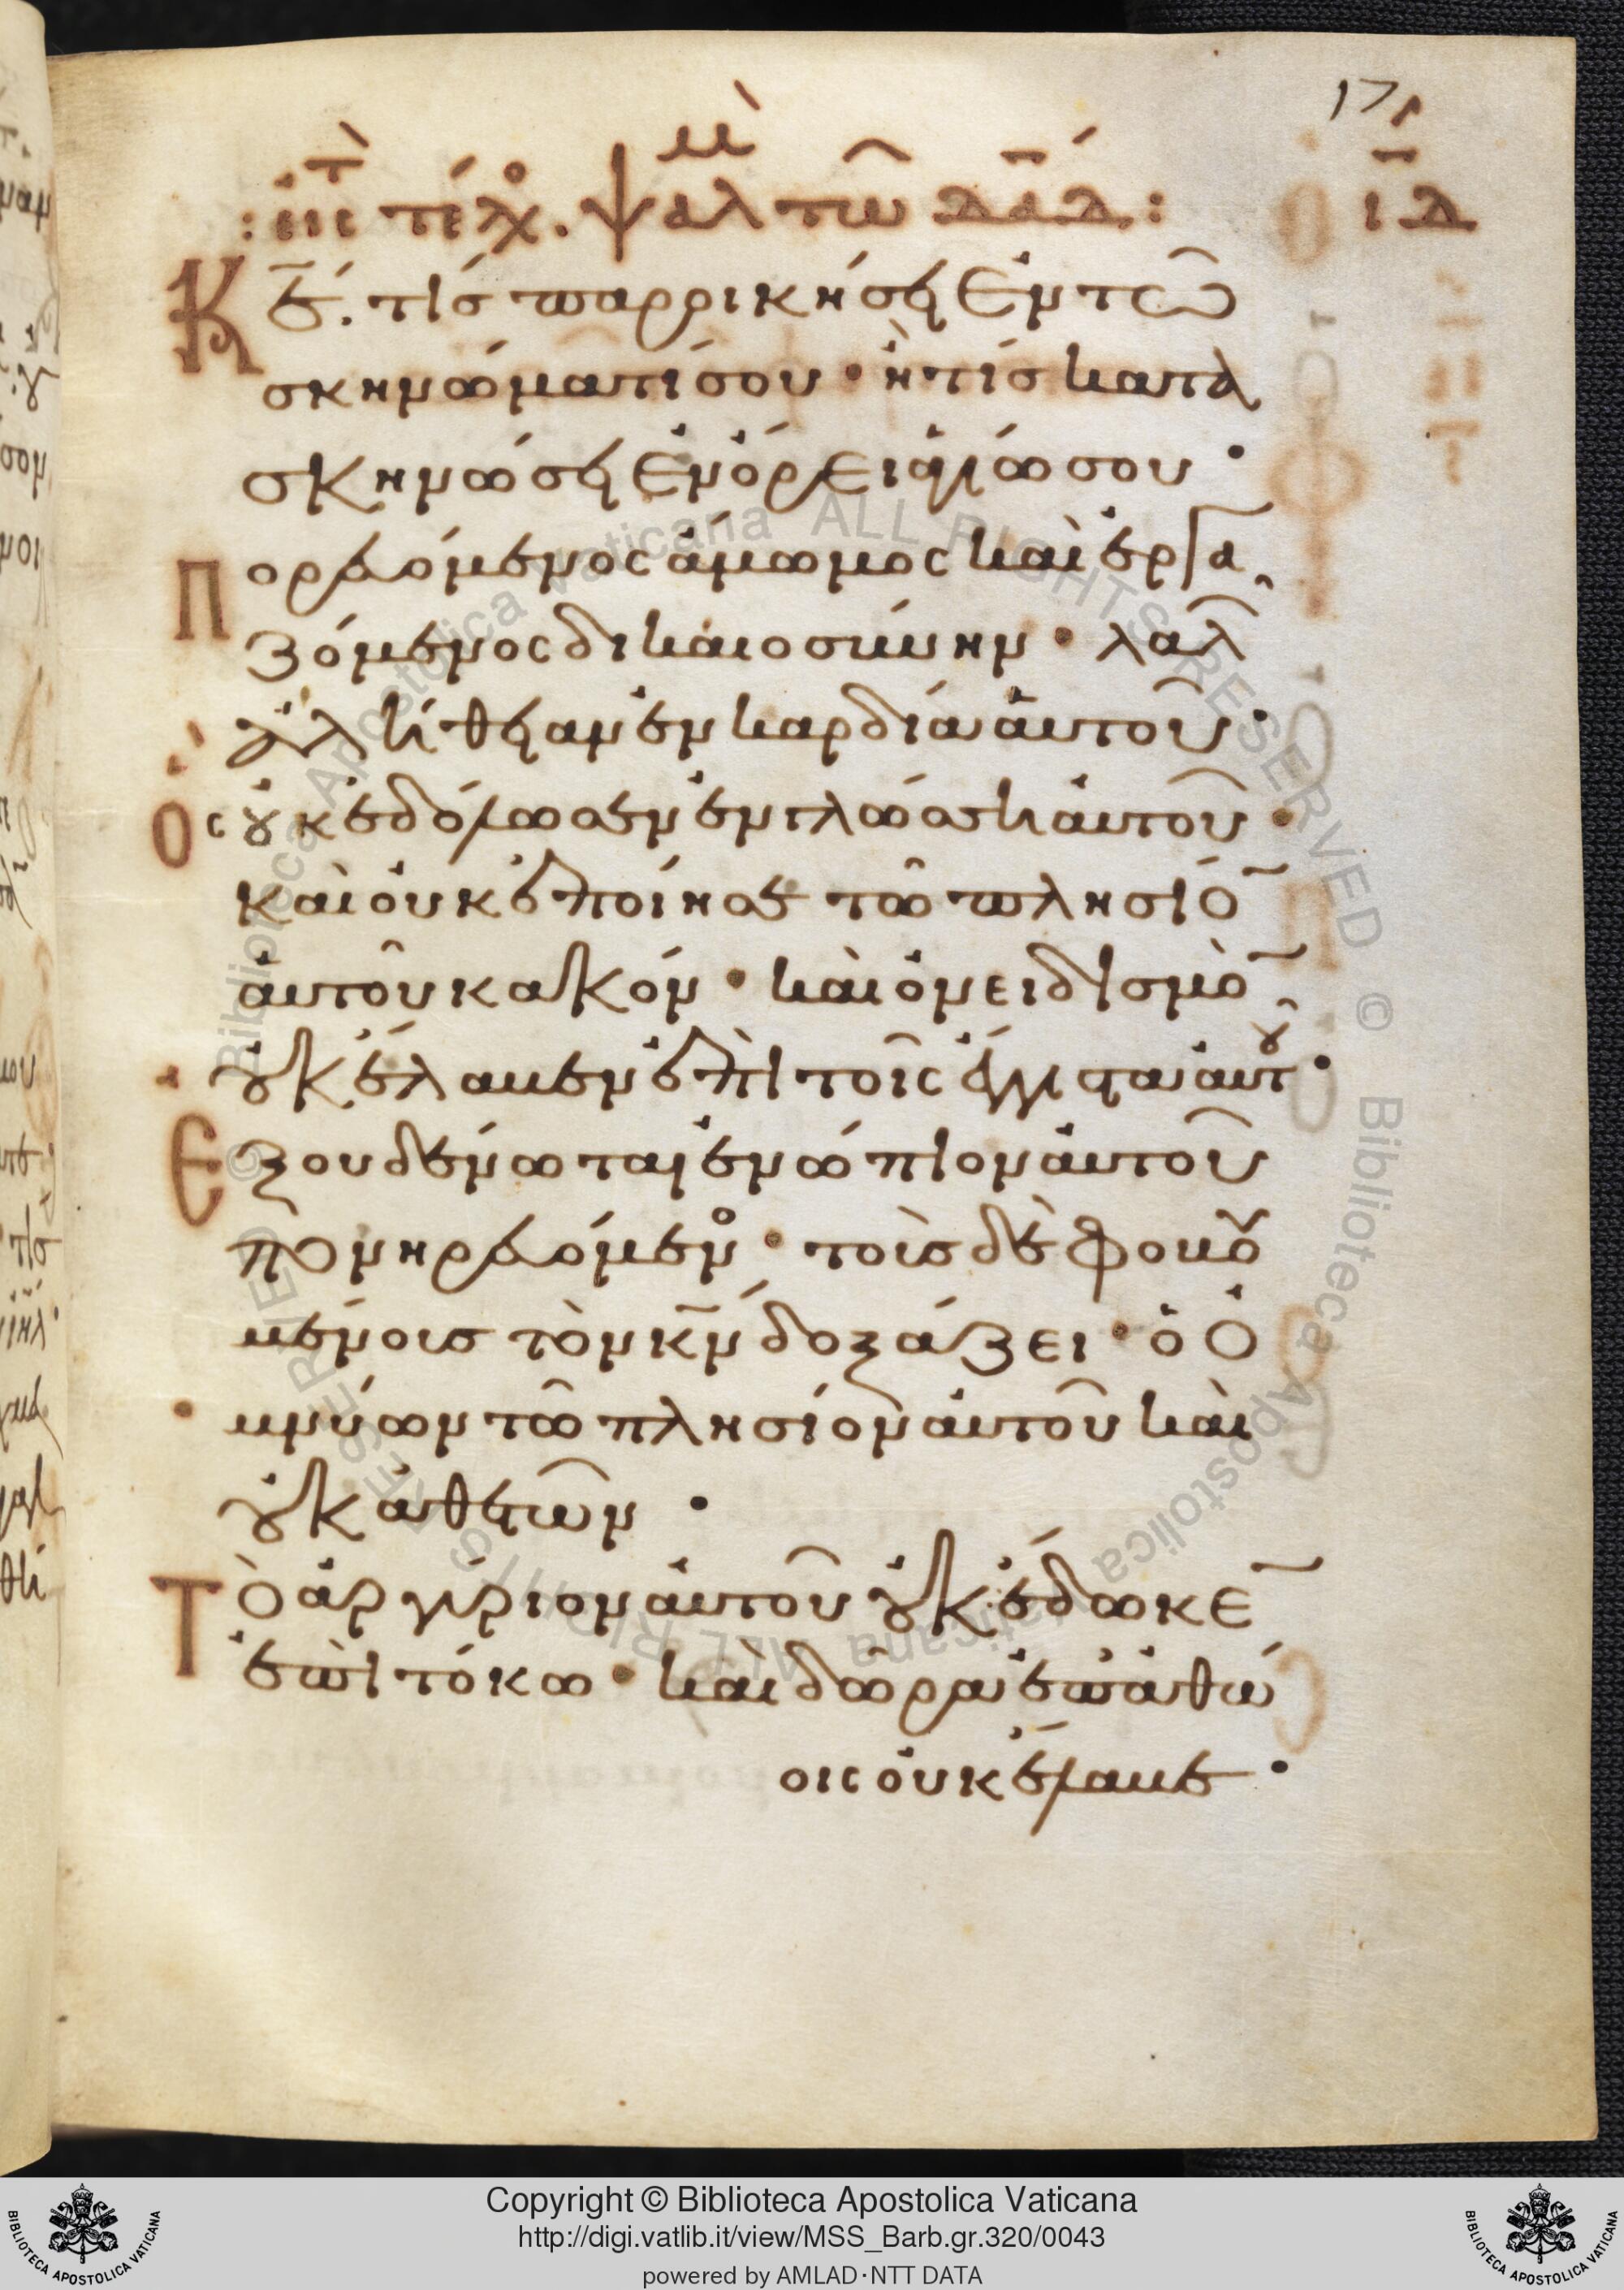 17
: εἰς τὸ τέλος. ψαλμὸς τῶ δᾱδ́ : ιδ
Κε̄́. τίσ παρρικήση ἐν τῶ
σκηνώματί σου · ἢ τίσ κατα
σκηνώση ἐν ὄρει ἁγίω σου ·
Πορευόμενος ἄμωμος καὶ ἐργα
ζόμενος δικαιοσύνην · λαλῶ
ἀλήθειαν ἐν καρδία αὐτοῦ ·
Ὃς οὐκ ἐδόλωσεν ἐν γλώσση αὐτοῦ ·
καὶ οὐκ ἐποίησε τῶ πλησίο̄
αὐτοῦ κακόν · καὶ ὀνειδισμὸ̄
οὐκ ἔλαβεν ἐπὶ τοῖς ἔγγιστα αὐτοῦ ·
Εξουδένωται ἐνώπιον αὐτοῦ
πονηρευόμενος · τοὺσ δὲ φοβου
μένουσ τὸν κ̄ν̄ δοξάζει · ὁ ὀ
μνύων τῶ πλησίον αὐτοῦ καὶ
οὐκ ἀθετῶν ·
Τὸ ἀργύριον αὐτοῦ οὐκ ἔδωκε̄
ἐπὶ τόκω · καὶ δῶρα ἐπ' ἀθώ
οις οὐκ ἔλαβε ·
Copyright © Biblioteca Apostolica Vaticana
http://digi.vatlib.it/view/MSS_Barb.gr.320/0043
powered by AMLAD·NTT DATA